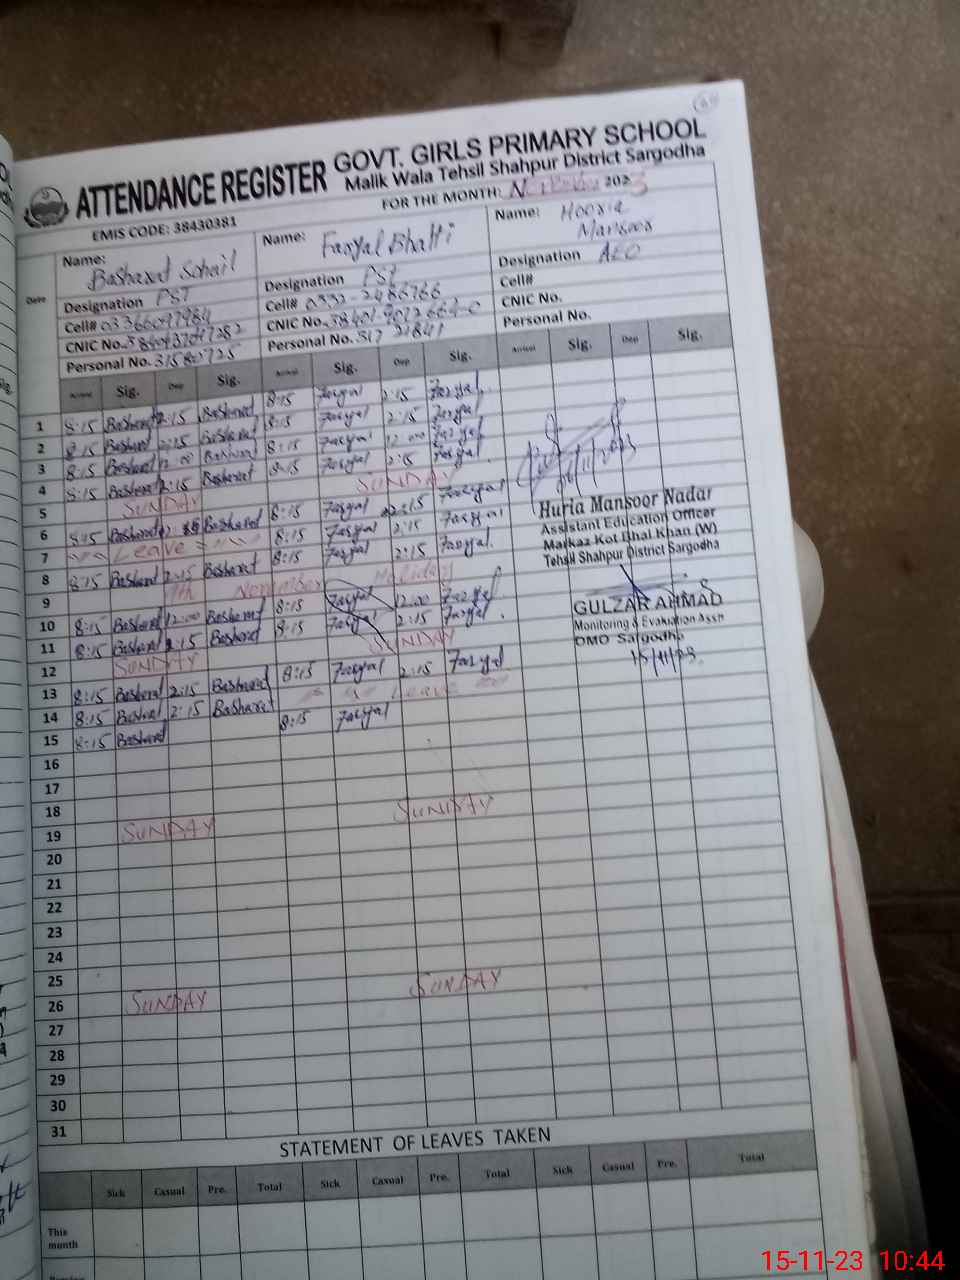 ATTENDANCE REGISTER GOVT. GIRLS PRIMARY SCHOOL
Malik Wala Tehsil Shahpur District Sargodha
EMIS CODE: 38430381 FOR THE MONTH: November 2023
Date
Name: Basharat Sohail
Designation PST
Cell# 03366097984
CNIC No.
Personal No. 31580725
Name: Faryal Bhatti
Designation PST
Cell# 0332-2486766
CNIC No. 38401-9012664-0
Personal No. 31721841
Name: Hooria Mansoor
Designation AEO
Cell#
CNIC No.
Personal No.
Arrival Sig. Dep Sig. Arrival Sig. Dep Sig. Arrival Sig. Dep Sig.
1 8:15 Basharat 2:15 Basharat 8:15 Faryal 2:15 Faryal
2 8:15 Basharat 2:15 Basharat 8:15 Faryal 2:15 Faryal
3 8:15 Basharat 12:00 Basharat 8:15 Faryal 12:00 Faryal
4 8:15 Basharat 2:15 Basharat 8:15 Faryal 2:15 Faryal
5 SUNDAY SUNDAY
6 8:15 Basharat Basharat 8:15 Faryal 2:15 Faryal
7 Leave 8:15 Faryal 2:15 Faryal
8 8:15 Basharat 2:15 Basharat 8:15 Faryal 2:15 Faryal
9 9th November Holiday
10 8:15 Basharat 12:00 Basharat 8:15 Faryal 12:00 Faryal
11 8:15 Basharat 2:15 Basharat 8:15 Faryal 2:15 Faryal
12 SUNDAY SUNDAY
13 8:15 Basharat 2:15 Basharat 8:15 Faryal 2:15 Faryal
14 8:15 Basharat 2:15 Basharat Leave
15 8:15 Basharat 8:15 Faryal
16
17
18
19 SUNDAY SUNDAY
20
21
22
23
24
25
26 SUNDAY SUNDAY
27
28
29
30
31
Huria Mansoor Nadar
Assistant Education Officer
Markaz Kot Bhai Khan (W)
Tehsil Shahpur District Sargodha
GULZAR AHMAD
Monitoring & Evaluation Assn
DMO Sargodha
15/11/23.
STATEMENT OF LEAVES TAKEN
Sick Casual Pre. Total Sick Casual Pre. Total Sick Casual Pre. Total
This month
15-11-23 10:44